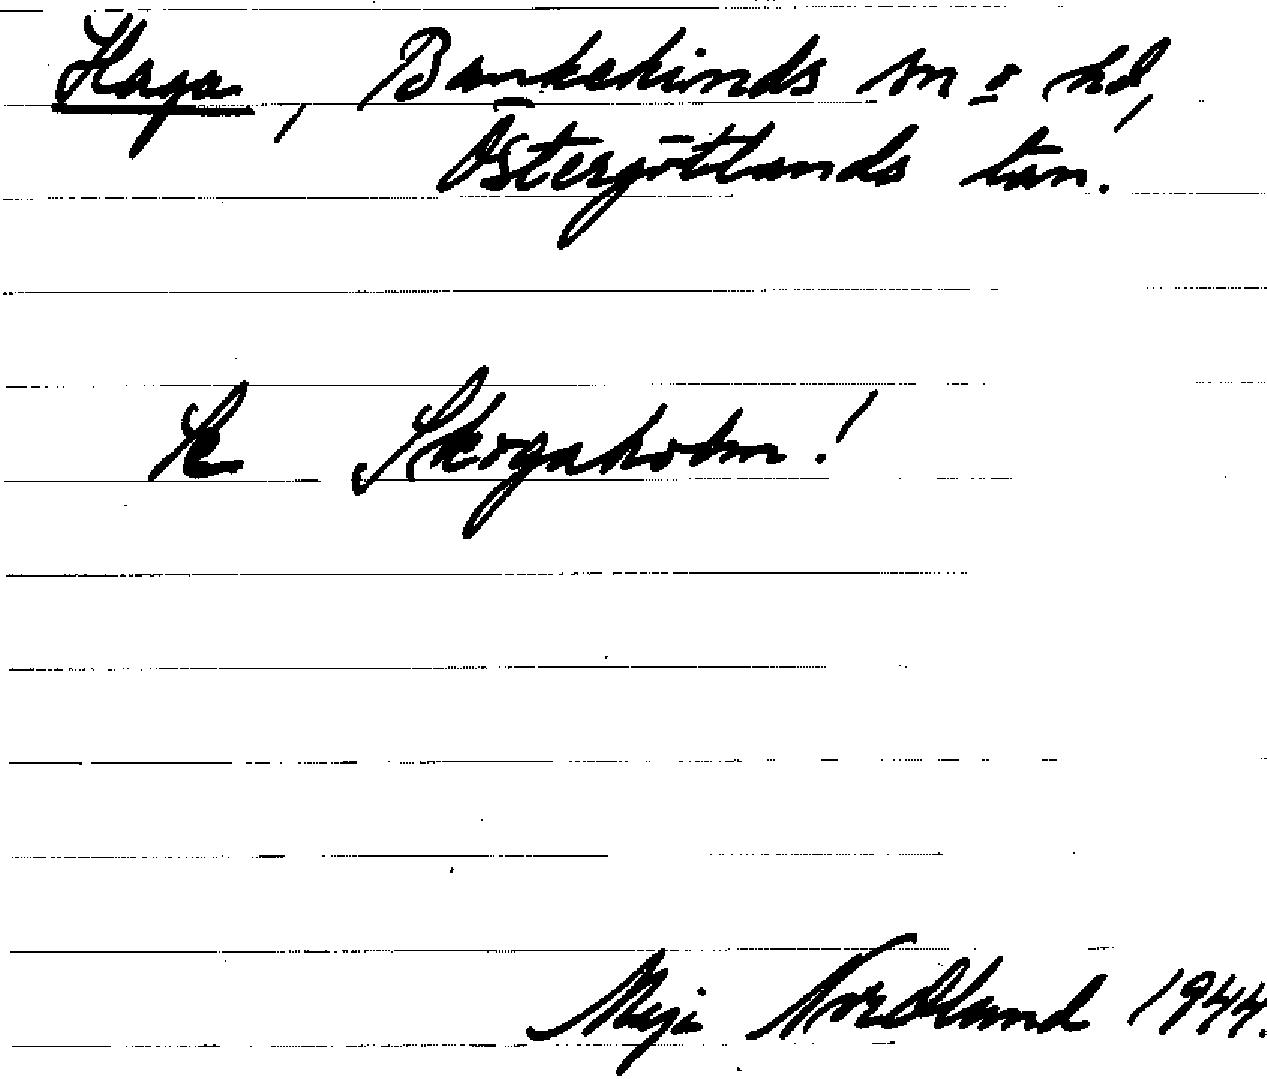 Haga, Bankekinds sn o hd,
Östergötlands län.
Se Skogaholm!
Maj Nordland 1944.